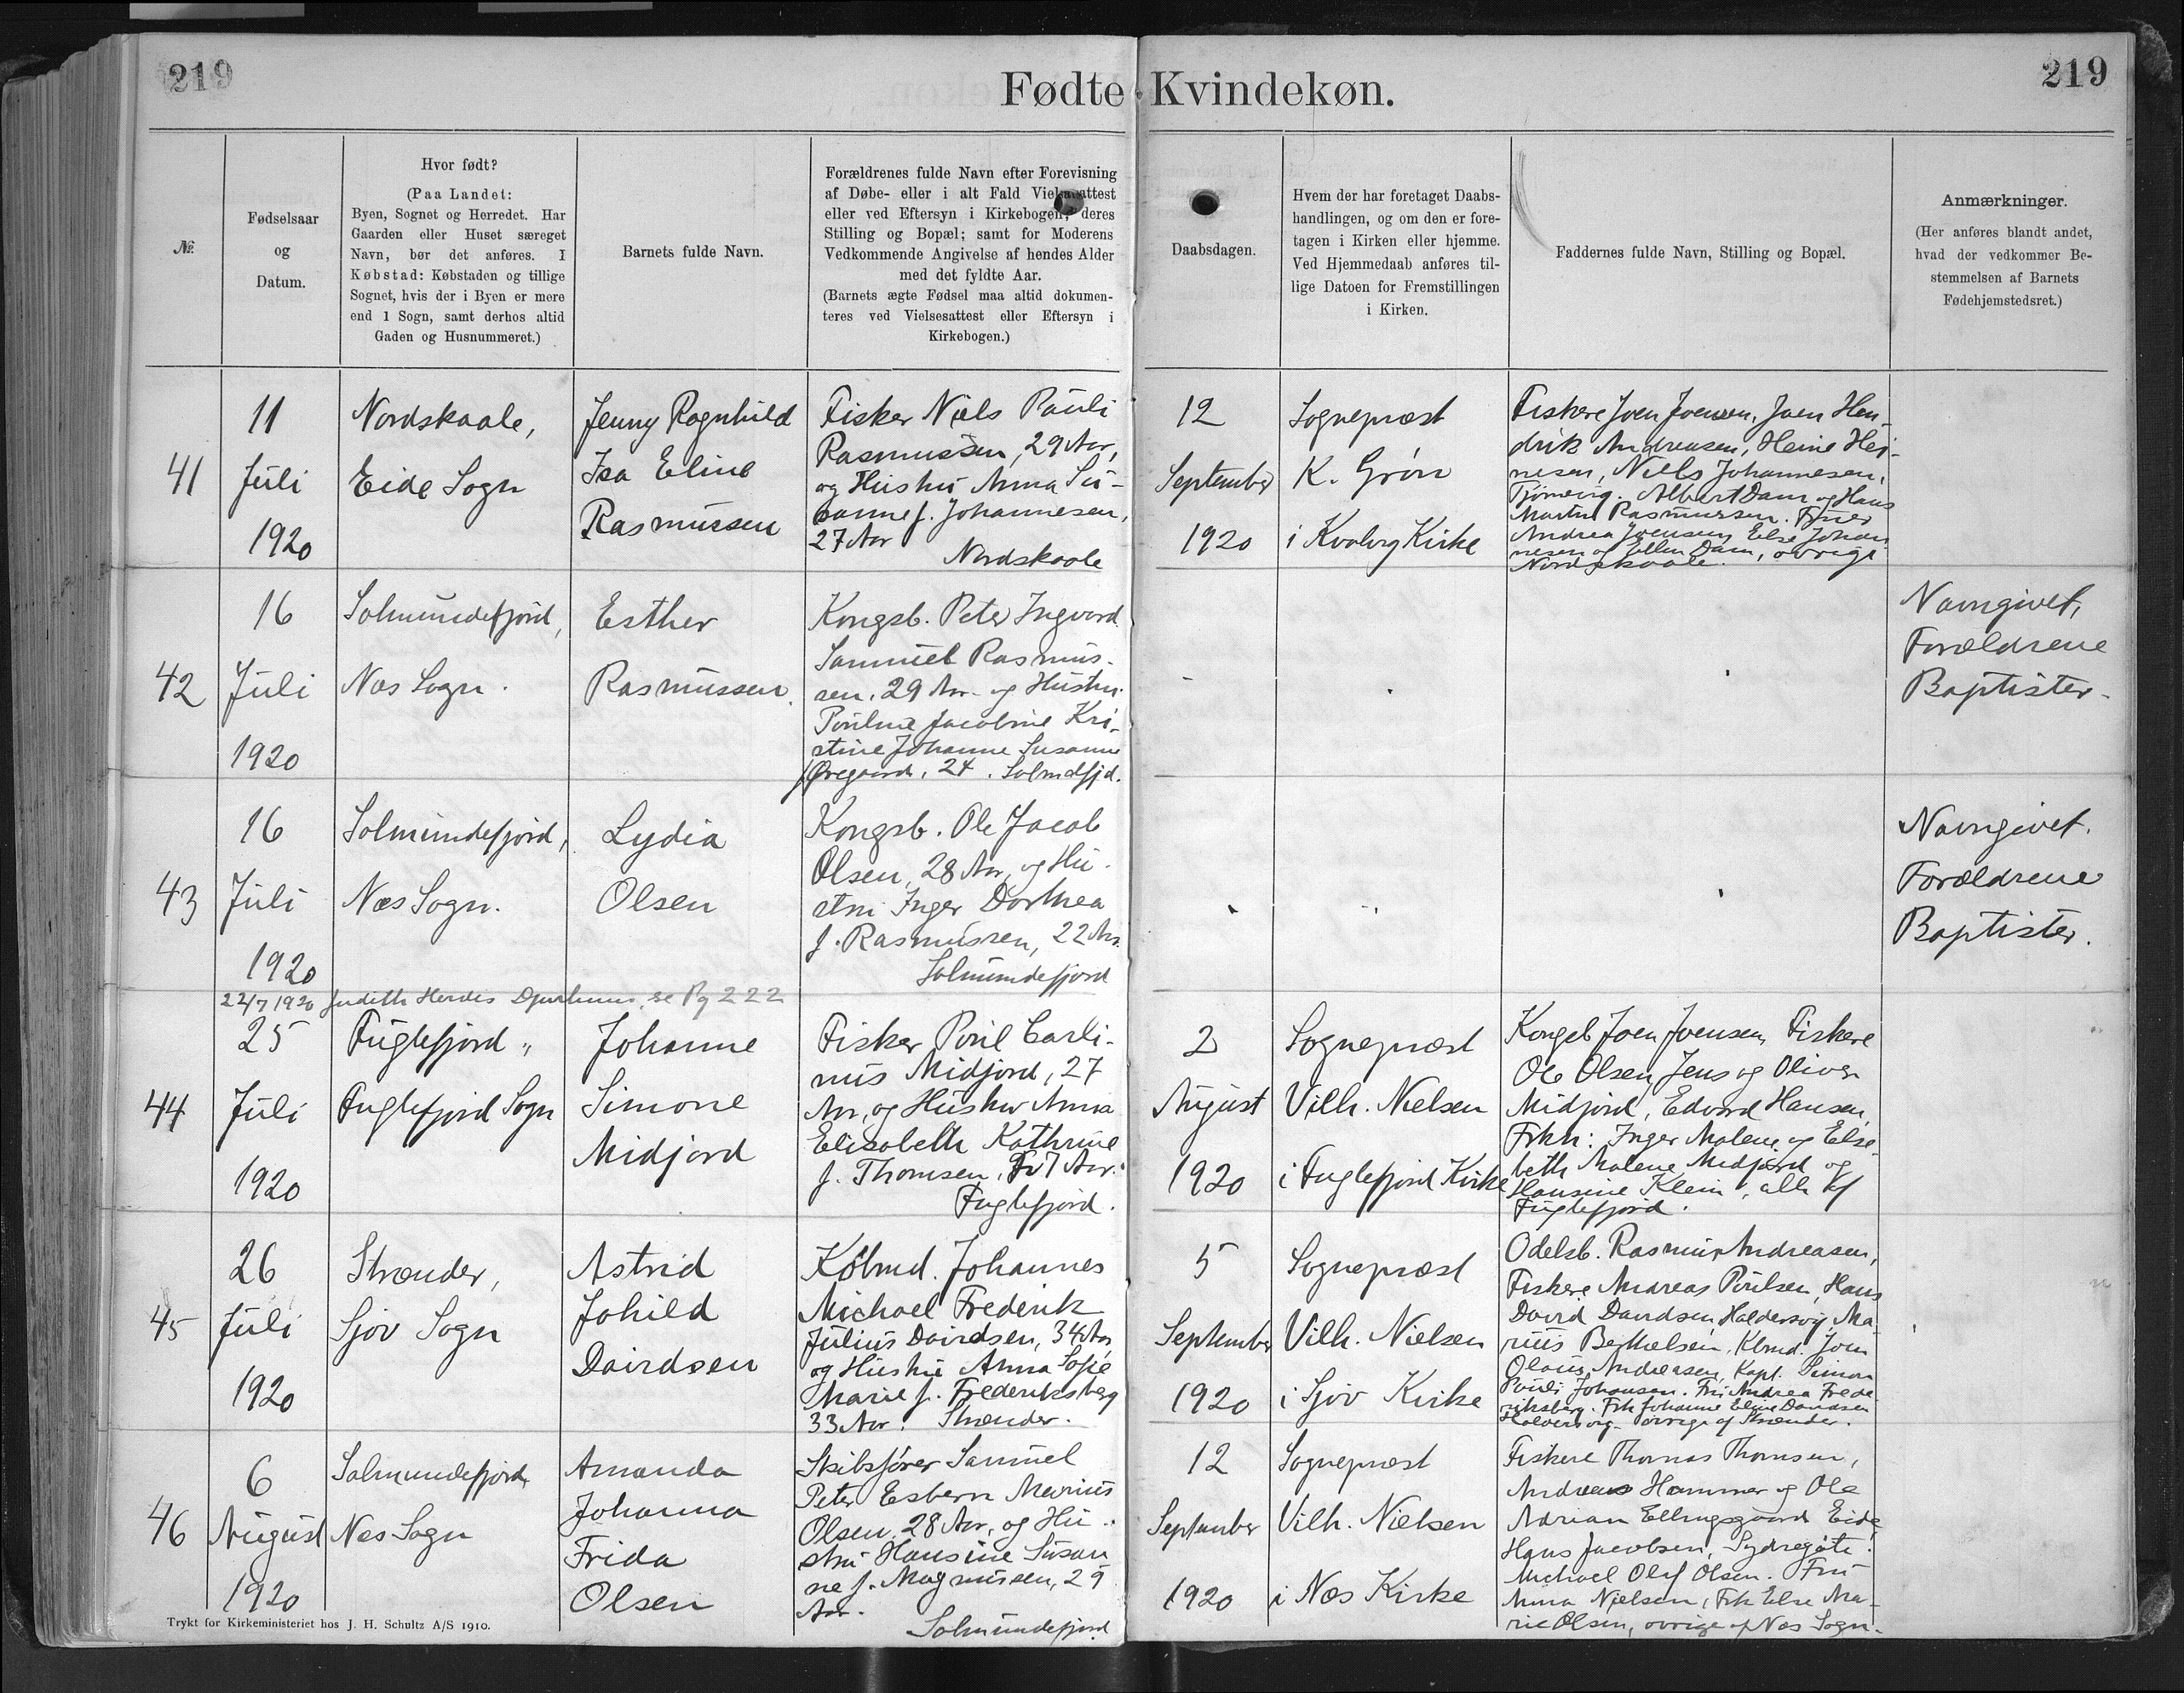 219
Fødte Kvindekøn.
219
№
Fødselsaar
og
Datum.
Hvor født?
(Paa Landet:
Byen, Sognet og Herredet. Har
Gaarden eller Huset særeget
Navn, bør det anføres. I
Købstad: Købstaden og tillige
Sognet, hvis der i Byen er mere
end 1 Sogn, samt derhos altid
Gaden og Husnummeret.)
Barnets fulde Navn.
Forældrenes fulde Navn efter Forevisning
af Døbe- eller i alt Fald Vielsesattest
eller ved Eftersyn i Kirkebogen, deres
Stilling og Bopæl; samt for Moderens
Vedkommende Angivelse af hendes Alder
med det fyldte Aar.
(Barnets ægte Fødsel maa altid dokumen-
teres ved Vielsesattest eller Eftersyn i
Kirkebogen.)
Daabsdagen.
Hvem der har foretaget Daabs-
handlingen, og om den er fore-
tagen i Kirken eller hjemme.
Ved Hjemmedaab anføres til-
lige Datoen for Fremstillingen
i Kirken.
Faddernes fulde Navn, Stilling og Bopæl.
Anmærkninger.
(Her anføres blandt andet,
hvad der vedkommer Be-
stemmelsen af Barnets
Fødehjemstedsret.)
41
11
Juli
1920
Nordskaale,
Eide Sogn
Jenny Ragnhild
Isa Eline
Rasmussen
Fisker Niels Pauli
Rasmussen, 29 Aar,
og Hustru Anna Su-
sanne f. Johannesen,
27 Aar
Nordskaale
12
September
1920
Sognepræst
K. Grøn
i Kvalvig Kirke
Fiskere Joen Joensen, Joen Hen-
drik Andreasen, Heine Hei-
nesen, Niels Johannesen,
Tjørnevig. Albert Dam og Hans
Martin Rasmussen. Fruer
Andrea Joensen, Else Johan
nesen og Ellen Dam, øvrige
Nordskaale.
42
16
Juli
1920
Salmundefjord,
Næs Sogn.
Esther
Rasmussen.
Kongsb. Peter Ingvard
Samuel Rasmus-
sen, 29 Aar og Hustru
Pouline Jacobine Kri-
stine Johanne Susanne
f Øregaard, 24. Salmdfjd.
Navngivet,
Forældrene
Baptister.
43
16
Juli
1920
Salmundefjord,
Næs Sogn.
Lydia
Olsen
Kongsb. Ole Jacob
Olsen, 28 Aar, og Hu-
stru Inger Dorthea
f. Rasmussen, 22 Aar.
Salmundefjord
Navngivet.
Forældrene
Baptister.
22/7 1920 Judith Herdis Djurhuus, se Pg 222
44
25
Juli
1920
Fuglefjord,,
Fuglefjord Sogn
Johanne
Simone
Midjord
Fisker Poul Carli-
nus Midjord, 27
Aar, og Hustru Anna
Elisabeth Kathrine
f. Thomsen, 27 Aar.
Fuglefjord.
2
August
1920
Sognepræst
Vilh. Nielsen
i Fuglefjord Kirke
Kongsb Joen Joensen, Fiskere
Ole Olsen, Jens og Oliver
Midjord, Edvard Hansen,
Frkn: Inger Malene og Else-
beth Malene Midjord og
Hansine Klein, alle af
Fuglefjord.
45
26
Juli
1920
Strænder,
Sjov Sogn
Astrid
Johild
Davidsen
Købmd. Johannes
Michael Frederik
Julius Davidsen, 34 Aar
og Hustru Anna Sofie
Marie f. Frederiksberg
33 Aar. Strænder.
5
September
1920
Sognepræst
Vilh. Nielsen
i Sjov Kirke
Odelsb. Rasmus Andreasen,
Fiskere Andreas Poulsen, Hans
David Davidsen, Haldersvig, Ma-
rius Berthelsen, Kbmd. Joen
Olaus Andreasen, Kapt. Simon
Pouli Johansen. Fru Andrea Frede
riksberg. Frk Johanne Eline Davidsen
Haldersvig. øvrige af Strænder.
46
6
August
1920
Salmundefjord,
Næs Sogn
Amanda
Johanna
Frida
Olsen
Skibsfører Samuel
Peter Esbern Marius
Olsen, 28 Aar, og Hu-
stru Hansine Susan
ne f. Magnussen, 29
Aar.
Salmundefjord
12
September
1920
Sognepræst
Vilh. Nielsen
i Næs Kirke
Fiskere Thomas Thomsen,
Andreas Hammer og Ole
Adrian Ellingsgaard Eide,
Hans Jacobsen, Sydregøte.
Michael Oluf Olsen. Fru
Anna Nielsen, Frk Else Ma-
rie Olsen, øvrige af Næs Sogn.
Trykt for Kirkeministeriet hos J. H. Schultz A/S 1910.